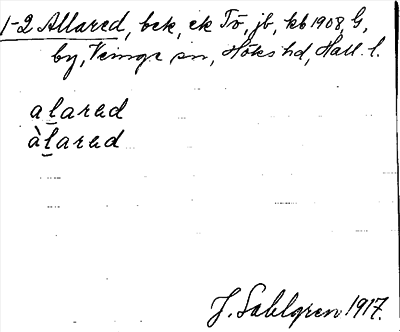 1-2 Allared, bek, ek Tö, jb, kb 1908, G,
by, Veinge sn, Höks hd, Hall. l.
alarad
àlarad
J. Sahlgren 1917.